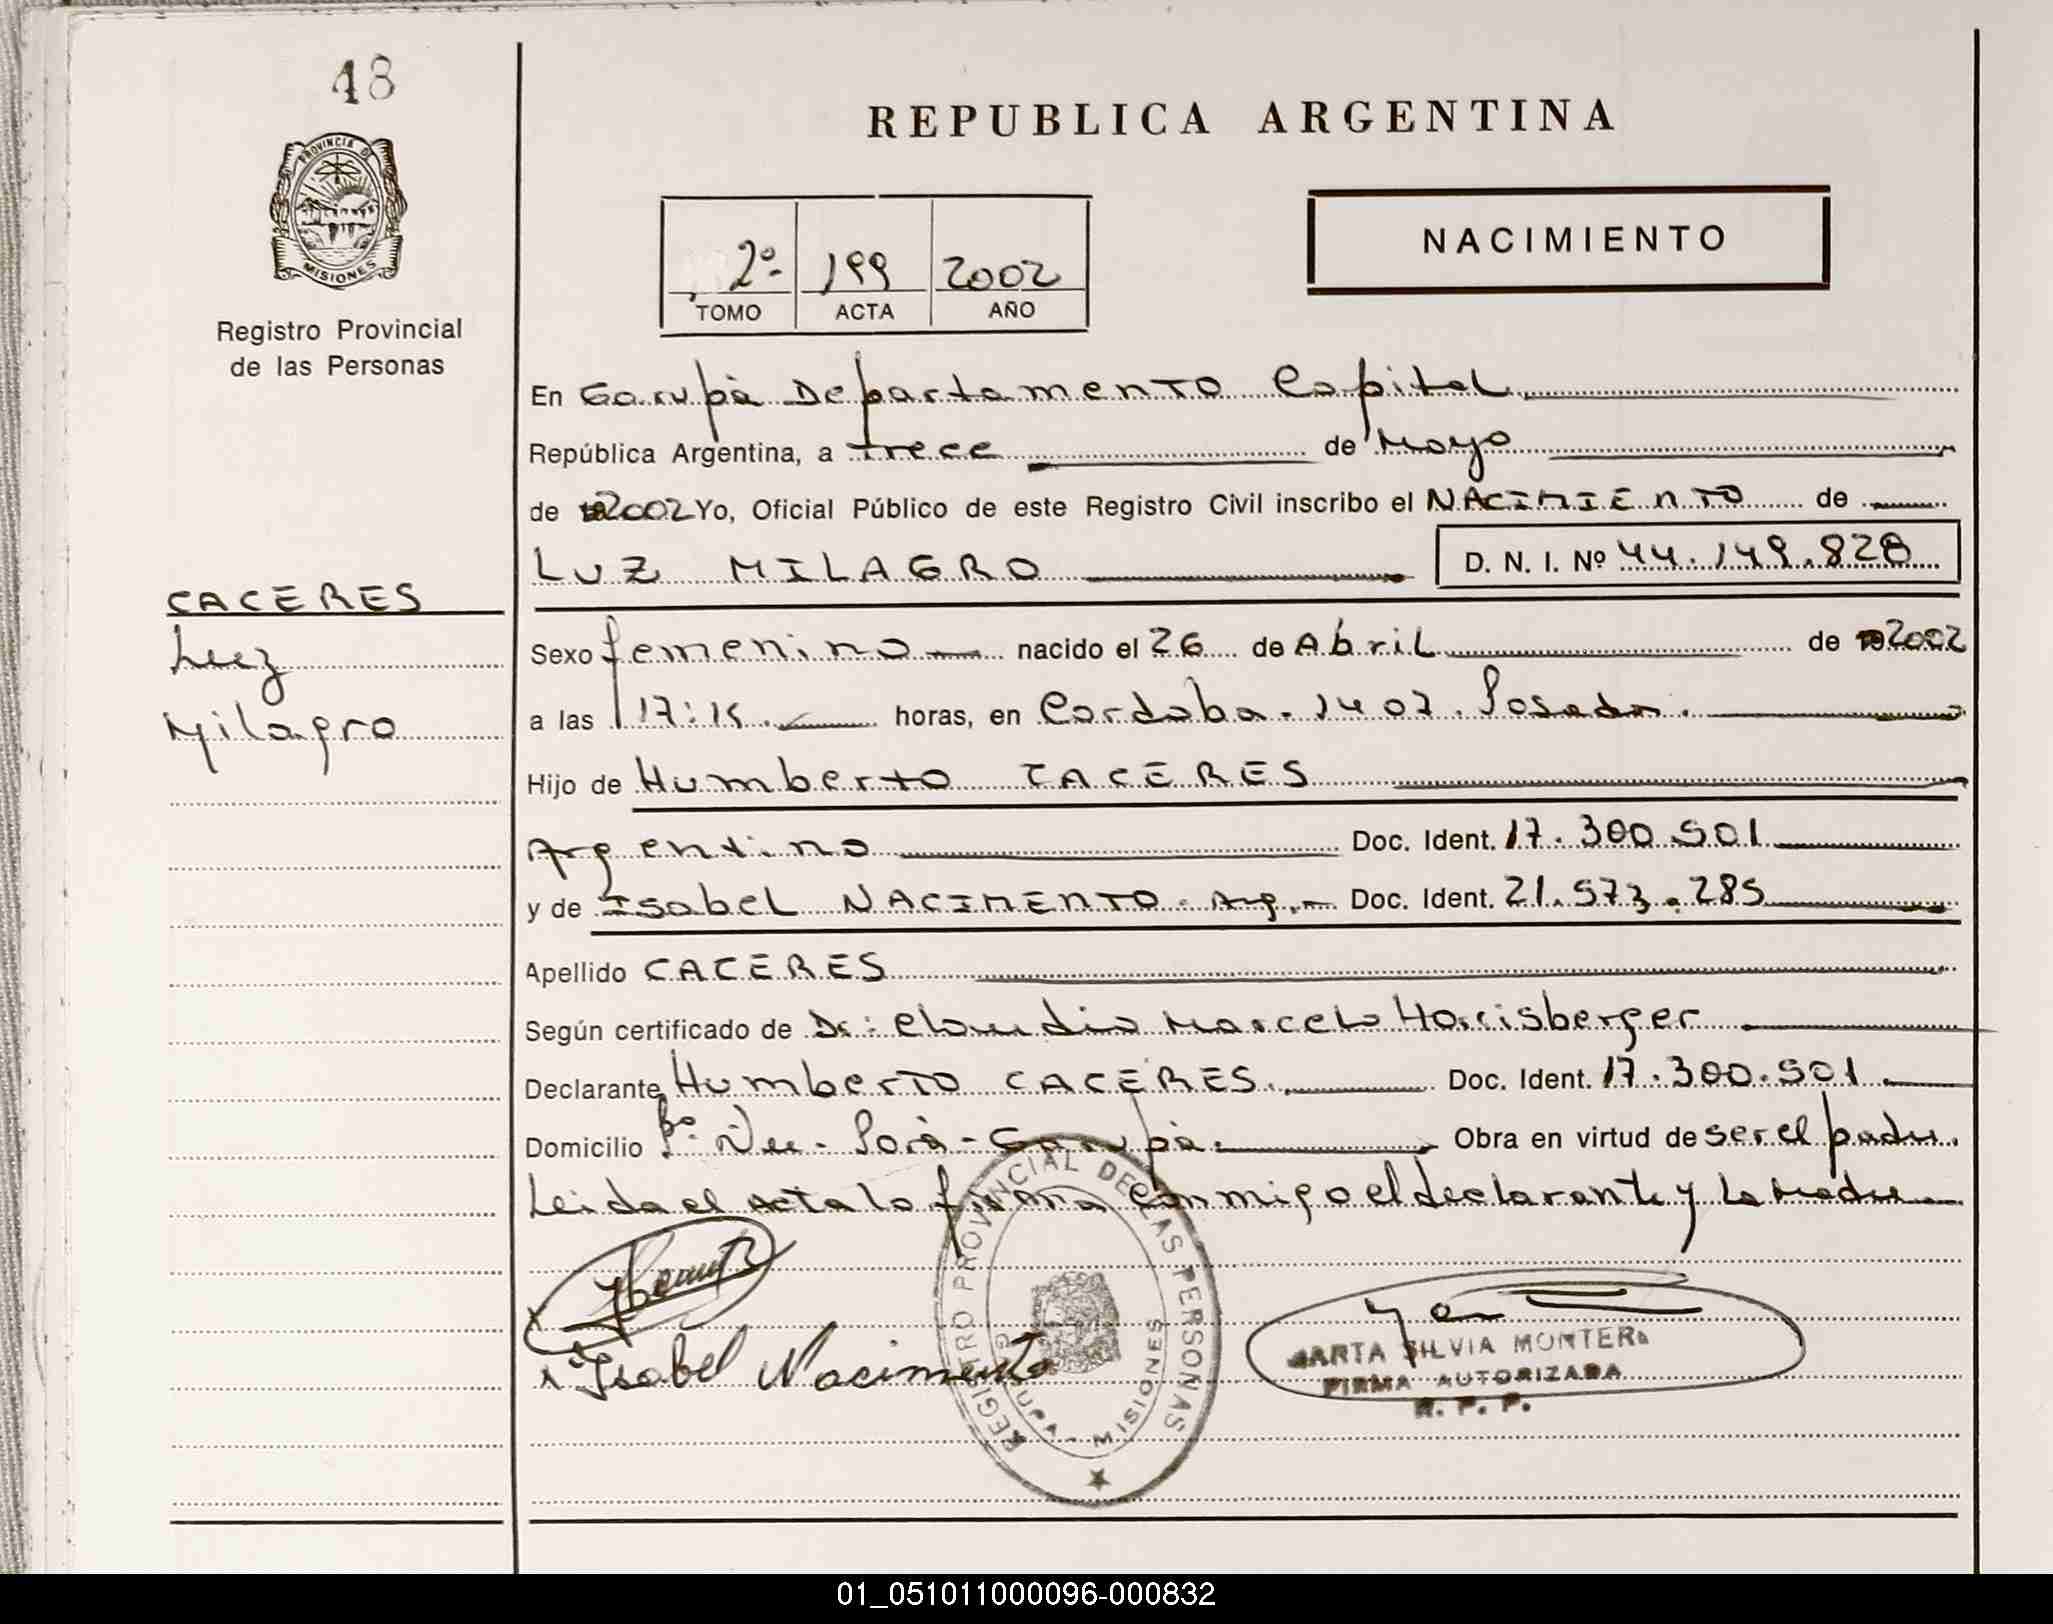 48
REPUBLICA ARGENTINA
PROVINCIA DE
MISIONES
Registro Provincial
de las Personas
2º- 199 2002
TOMO ACTA AÑO
NACIMIENTO
En Garupà Departamento Capital
República Argentina, a trece de Mayo
de 2002 Yo, Oficial Público de este Registro Civil inscribo el NACIMIENTO de
LUZ MILAGRO D. N. I. Nº 44.149.828
CACERES
Luz
Milagro
Sexo femenino nacido el 26 de Abril de 2002
a las 17:15 horas, en Cordoba. 1407. Posadas.
Hijo de Humberto CACERES
Argentino Doc. Ident. 17.300.501
y de Isabel NACIMENTO. Arg. Doc. Ident. 21.573.285
Apellido CACERES
Según certificado de Dr: Claudio Marcelo Harrisberger
Declarante Humberto CACERES. Doc. Ident. 17.300.501
Domicilio Bº Ñu-Porà-Garupà. Obra en virtud de ser el padre.
Leida el Acta la firma conmigo el declarante y la Madre
Isabel Nacimento
REGISTRO PROVINCIAL DE LAS PERSONAS
GARUPA - MISIONES
MARTA SILVIA MONTERO
FIRMA AUTORIZADA
R. P. P.
01_051011000096-000832